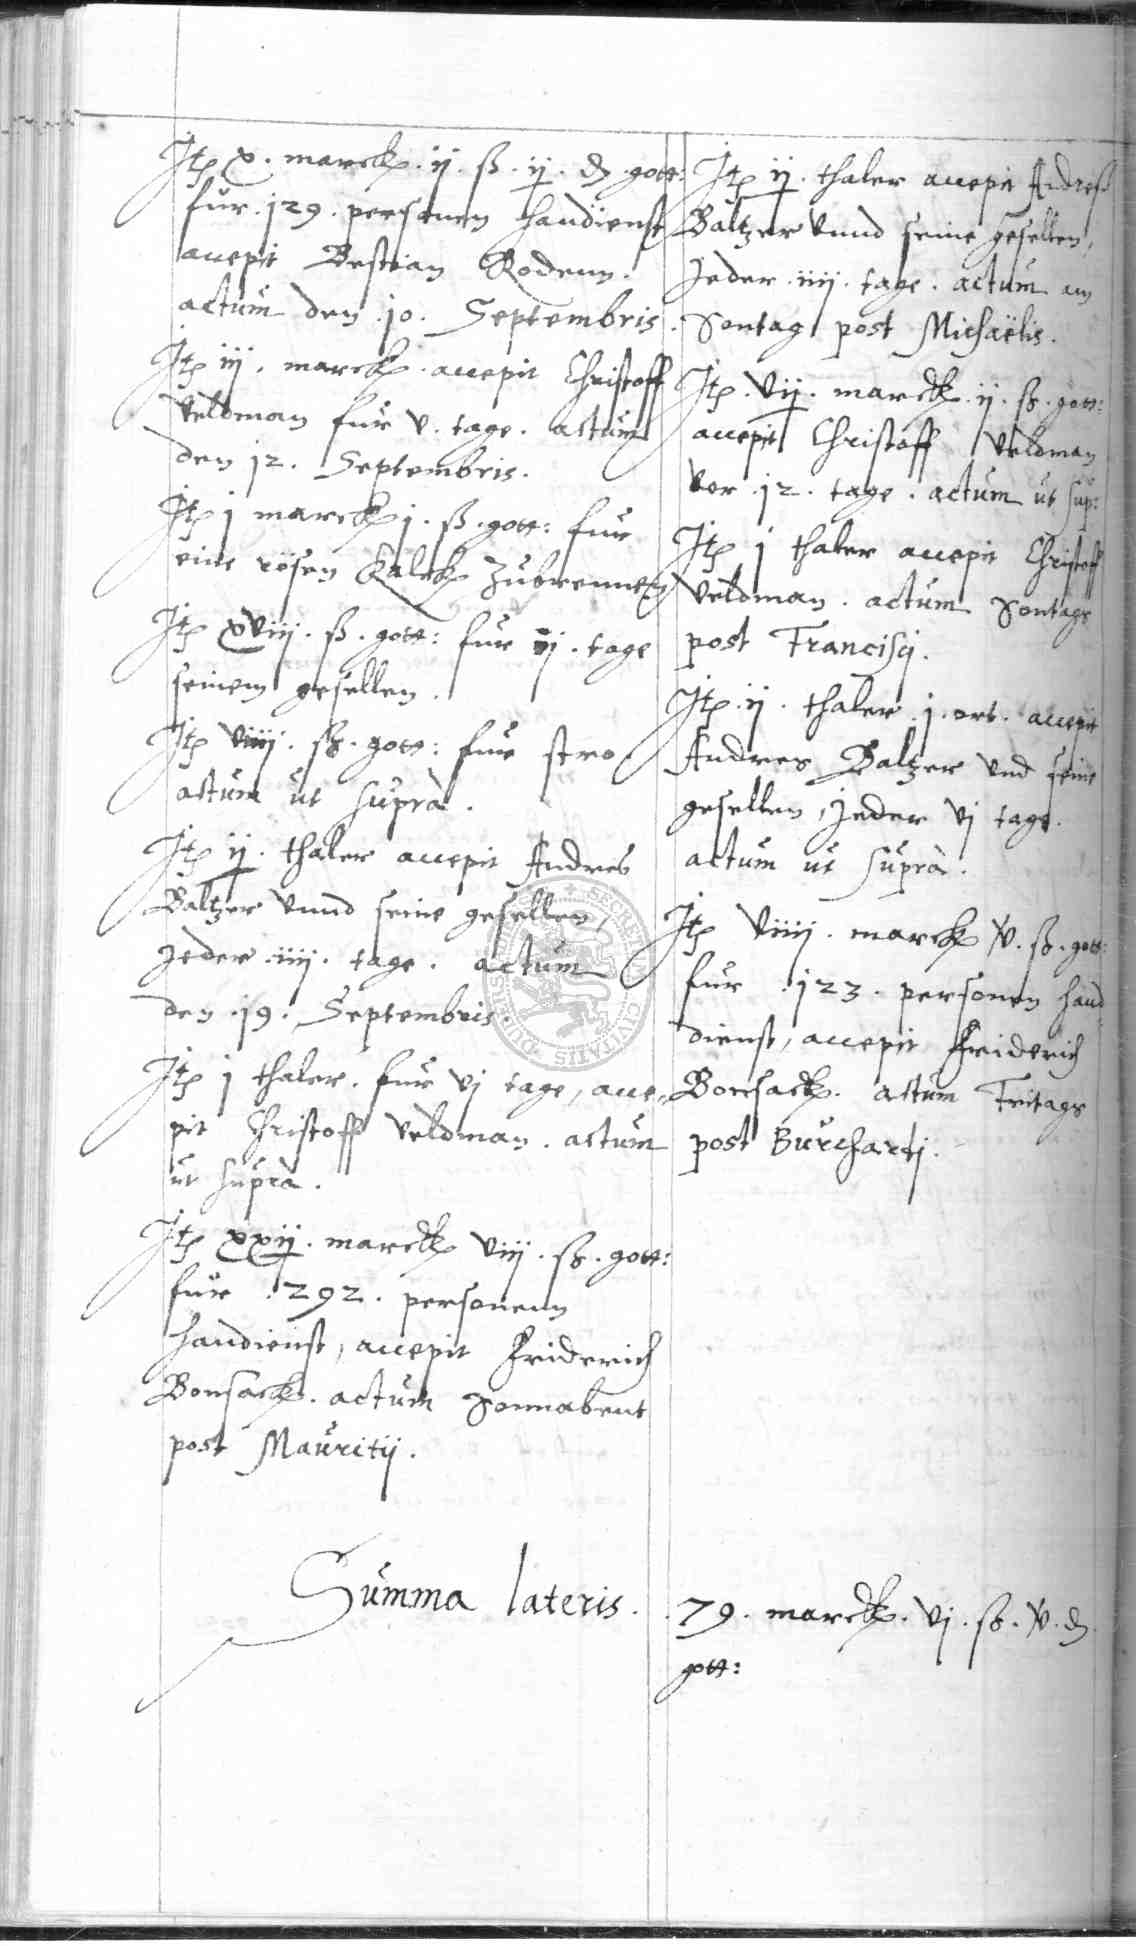 Itֽ x. marck. ij. ß. ij. ₰ gott:
fur .129. personen handienst
accepit Bestian Rodenn.
actum den .10. Septembris.
Itֽ iij. marck. accepit Christoff
Veldman fur v. tage. actum
den 12. Septembris.
Itֽ j marck j. ß. gott: fur
eine rösen Kalck Zubrennen
Itֽ xviij. ß. gott: fur ij. tage
seinem gesellen.
Itֽ viiij. ß. gott: fur stro
actum ut suprà.
Itֽ ij. thaler accepit Andres
Baltzer vnnd seine gesellen,
Jeder .iiij. tage. actum
den .19. Septembris.
Itֽ j thaler. fur vj tage, acce„
pit Christoff Veldman. actum
ut suprà.
Itֽ xxij. marck viij. ß. gott:
fur .292. personenn
handienst, accepit Friderich
Bonsack. actum Sonnabent
post Mauritij.
Itֽ ij. thaler accepit Andreß
Baltzer vnnd seine gesellen,
Jeder .iiij. tage. actum am
Sontag post Michaëlis.
Itֽ. vij. marck. ij. ß. gott:
accepit Christoff Veldman
vor .12. tage. actum ut sup:
Itֽ j thaler accepit Christoff
Veldman. actum Sontags
post Francisci.
Itֽ. ij. thaler. j. ort. accepit
Andres Baltzer vnd seine
gesellen, Jeder vj tage.
actum ut suprà.
Itֽ viiij. marck v. ß. gott:
fur .123. personen hand
dienst, accepit Friderich
Bonsack. actum Fritags
post Burchardj.
Summa lateris. 79. marck. vj. ß. v. ₰
gott:
SECRETUM CIVITATIS